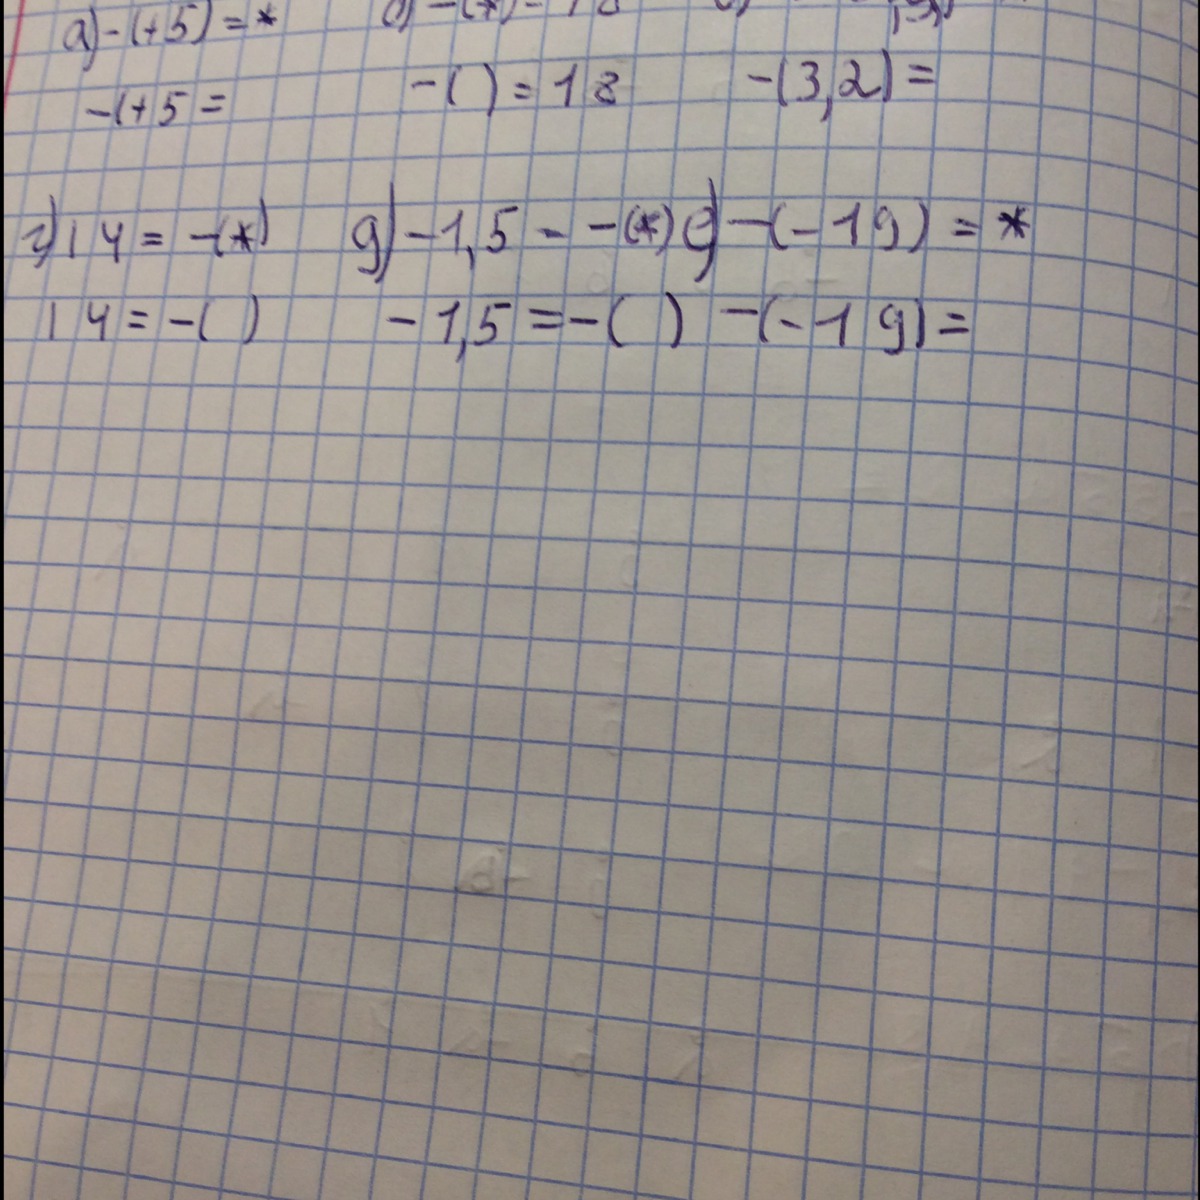 а) -(+5) = *
-(+5 =   -( ) = 18   -(3,2) =
г) 14 = -(*)   д) -1,5 - -(*)   е) -(-19) = *
14 = -( )   -1,5 = -( )   -(-19) =